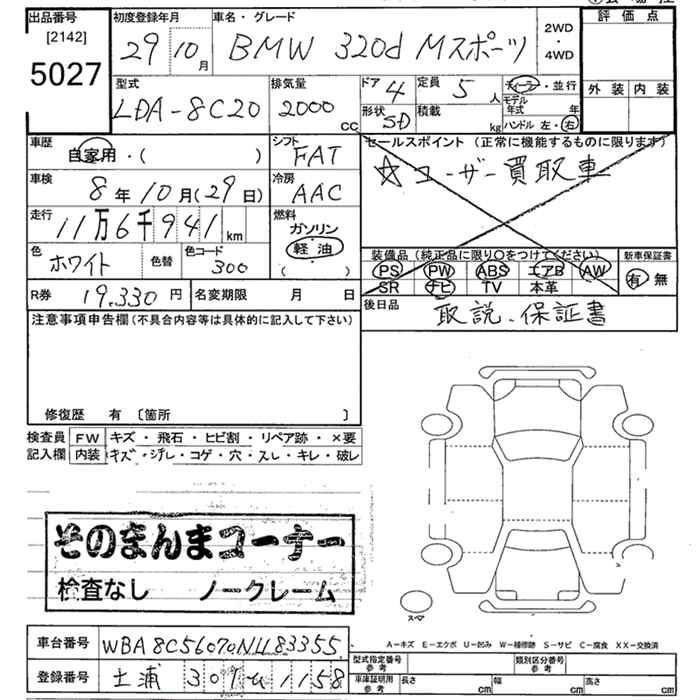 出品番号 初度登録年月 車名・グレード 評価点
[2142] 29 10月 BMW 320d Mスポーツ 2WD・4WD
5027
型式 排気量 ドア 4 定員 5人 ディーラー・並行 外装 内装
LDA-8C20 2000cc 形状 SD 積載 kg モデル年式 年
ハンドル 左・右
車歴 シフト セールスポイント (正常に機能するものに限ります)
自家用・( ) FAT ☆ユーザー買取車
車検 冷房
8年10月(29日) AAC
走行 燃料
11万6千941km ガソリン
軽油
( )
色 ホワイト 色替 色コード 300 装備品 (純正品に限り○をつけてください) 新車保証書
PS PW ABS エアB AW 有 無
SR ナビ TV 本革
R券 19,330円 名変期限 月 日 後日品 取説、保証書
注意事項申告欄 (不具合内容等は具体的に記入して下さい)
修復歴 有 〔箇所 〕
検査員 FW キズ・飛石・ヒビ割・リペア跡・×要
記入欄 内装 キズ・汚レ・コゲ・穴・スレ・キレ・破レ
そのまんまコーナー
検査なし ノークレーム
スペア
A-キズ E-エクボ U-凹み W-補修跡 S-サビ C-腐食 XX-交換済
車台番号
型式指定番号 参考 類別区分番号 参考
登録番号 土浦
車庫証明用 参考 長さ cm 幅 cm 高さ cm